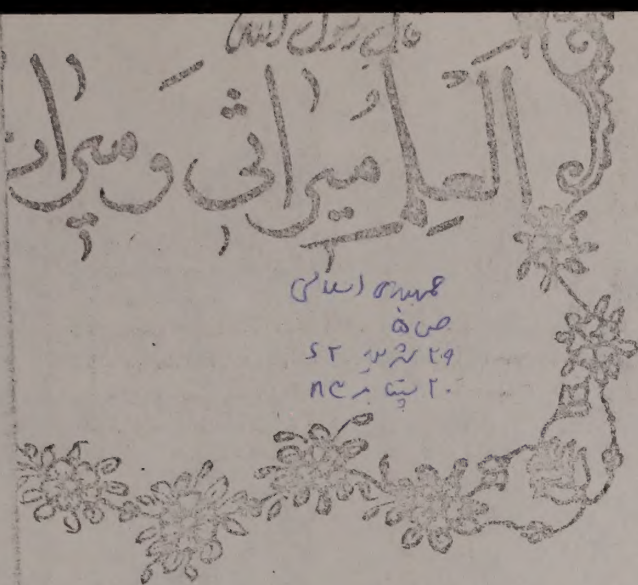 قال رسول الله
اَلعِلمُ میراثی وَ میرا
جمهوری اسلامی
ص ۵
۲۹ شهریور ۶۲
۲۰ سپتامبر ۸۳